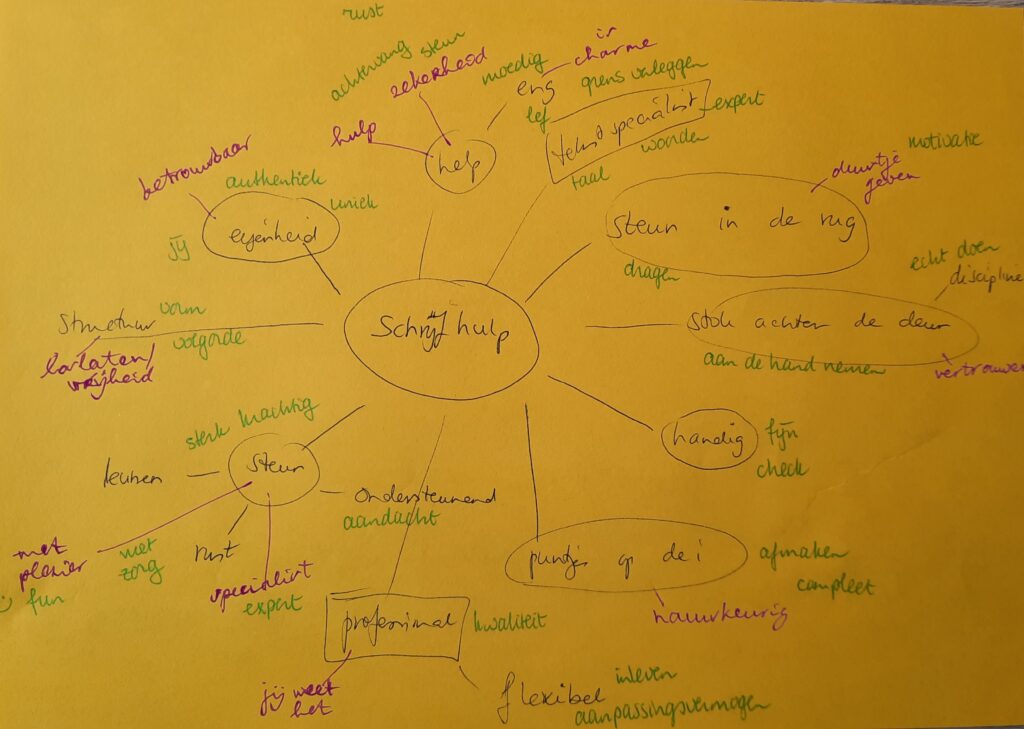 rust
achtervang
steun
zekerheid
moedig
eng
is
charme
grens verleggen
lef
tekstspecialist
expert
woorden
taal
hulp
help
betrouwbaar
authentiek
uniek
eigenheid
jij
motivatie
duwtje
geven
steun in de rug
dragen
echt doen
discipline
stok achter de deur
aan de hand nemen
vertrouwen
Schrijfhulp
structuur
vorm
volgorde
loslaten/
vrijheid
sterk krachtig
steun
leunen
ondersteunend
aandacht
rust
met
plezier
fun
met
zorg
specialist
expert
handig
fijn
check
puntjes op de i
afmaken
compleet
nauwkeurig
professional
kwaliteit
jij weet
het
flexibel
inleven
aanpassingsvermogen